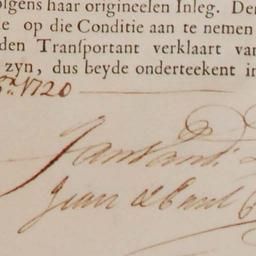 olgens haar origineelen Inleg. De
e op die Conditie aan te nemen
den Tranſportant verklaart va
zyn, dus beyde onderteekent i
1720
Jean